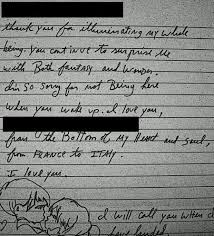 thank you for illuminating my whole
being. you continue to surprise me
with Both fantasy and Wonder.
I'm so sorry for not Being here
when you wake up. I love you,
from the Bottom of my Heart and soul,
from FRANCE to ITALY.
I love you.
I will call you when I
have landed